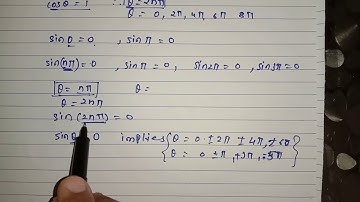 cosθ = 1 ∴ θ = 2nπ
θ = 0, 2π, 4π, 6π 8π
sin θ = 0 , sin π = 0
sin(nπ) = 0 , sin π = 0 , sin 2π = 0 , sin 3π = 0
θ = nπ θ =
θ = 2nπ
sin(2nπ) = 0
sin θ = 0 implies { θ = 0 ± 2π ± 4π, ± 6π
{ θ = 0 ± π, ±3π, ±5π }